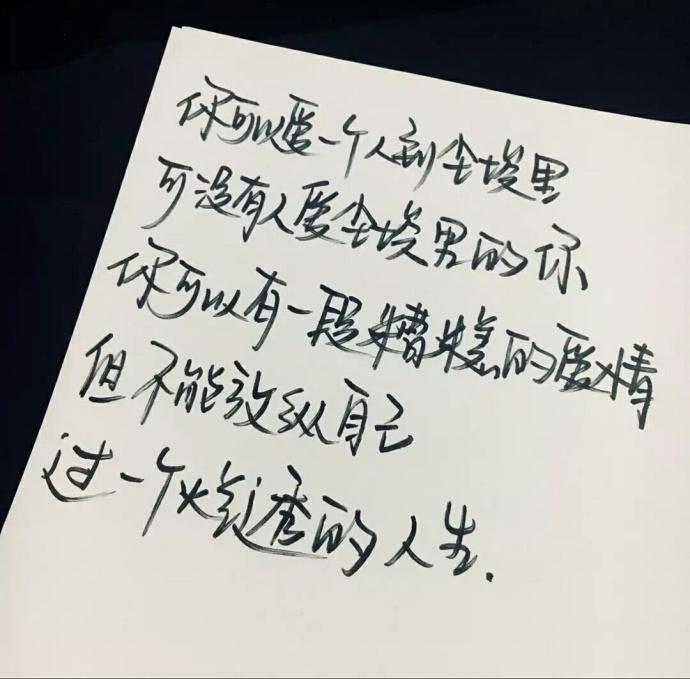 你可以爱一个人到尘埃里
可没有人爱尘埃里的你
你可以有一段糟糕的爱情
但不能放纵自己
过一个烂透的人生.